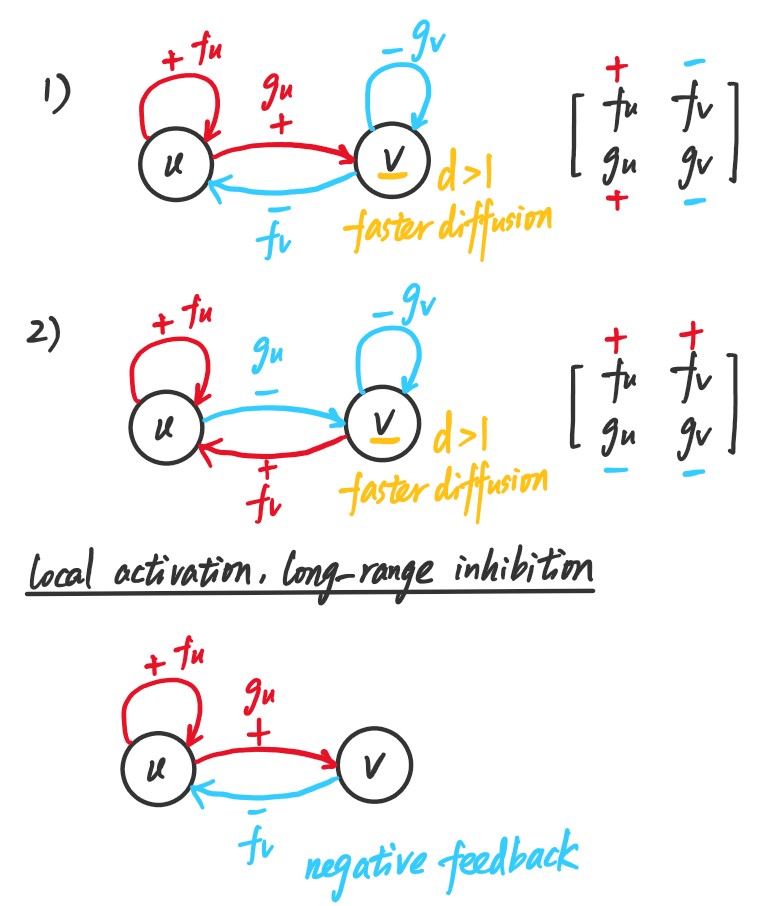 1)
+ fu
- gv
gu
+
u
v
d>1
-
fv
faster diffusion
+ -
[ fu fv ]
[ gu gv ]
+ -
2)
+ fu
- gv
gu
-
u
v
d>1
+
fv
faster diffusion
+ +
[ fu fv ]
[ gu gv ]
- -
local activation, long-range inhibition
+ fu
gu
+
u
v
-
fv
negative feedback